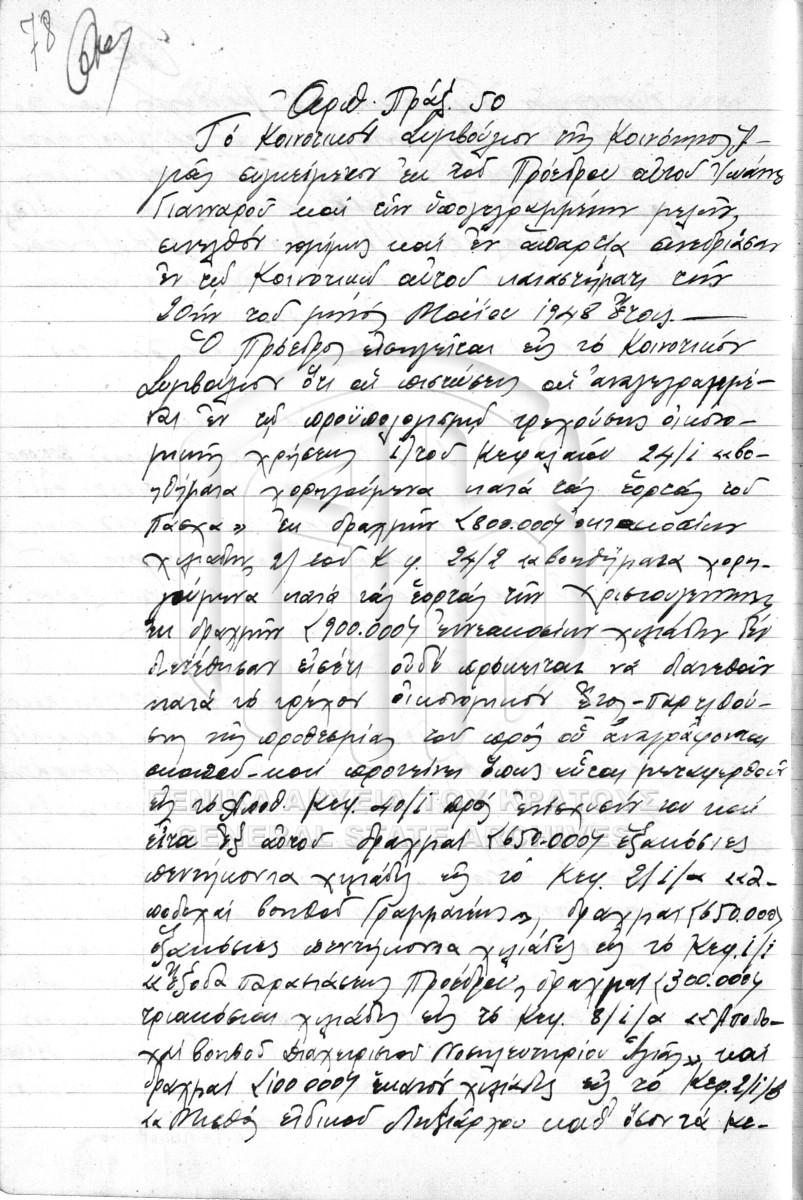 78
Αριθ. Πράξ. 50
Τό Κοινοτικόν Συμβούλιον τῆς Κοινότητος Ἁ-
γιᾶς συγκείμενον ἐκ τοῦ Προέδρου αὐτοῦ Ἰωάννη
Γιανναροῦ καί τῶν ὑπογεγραμμένων μελῶν,
συνελθόν νομίμως καί ἐν ἀπαρτίᾳ συνεδρίασαν
ἐν τῷ Κοινοτικῷ αὐτοῦ καταστήματι τήν
20ήν τοῦ μηνός Μαΐου 1948 ἔτους.—
Ὁ Πρόεδρος εἰσηγεῖται εἰς τό Κοινοτικόν
Συμβούλιον ὅτι αἱ πιστώσεις αἱ ἀναγεγραμμέ-
ναι ἐν τῷ προϋπολογισμῷ τρεχούσης οἰκονο-
μικῆς χρήσεως 1/ τοῦ Κεφαλαίου 24/1 «βο-
ηθήματα χορηγούμενα κατά τάς ἑορτάς τοῦ
Πάσχα» ἐκ δραχμῶν (800.000) ὀκτακοσίων
χιλιάδων 2/ τοῦ Κεφ. 24/2 «βοηθήματα χορη-
γούμενα κατά τάς ἑορτάς τῶν Χριστουγέννων
ἐκ δραχμῶν (900.000) ἐννεακοσίων χιλιάδων δέν
διετέθησαν εἰσέτι οὐδέ πρόκειται νά διατεθοῦν
κατά τό τρέχον οἰκονομικόν ἔτος-παρελθού-
σης τῆς προθεσμίας τοῦ πρός ὅν ἀναγράφονται
σκοποῦ-και προτείνει ὅπως αὗται μεταφερθοῦν
εἰς τό Ἀποθ. Κεφ. 40/1 πρός ἐνίσχυσίν του καί
εἶτα ἐξ αὐτοῦ δραχμαί (650.000) ἑξακόσιες
πεντήκοντα χιλιάδες εἰς τό Κεφ. 2/1/α «ἀ-
ποδοχαί βοηθοῦ Γραμματέως», δραχμαί (650.000)
ἑξακόσιες πεντήκοντα χιλιάδες εἰς τό Κεφ. 1/1
«Ἔξοδα παραστάσεως Προέδρου, δραχμαί (300.000)
τριακόσιαι χιλιάδες εἰς τό Κεφ. 8/1/α «Ἀποδο-
χαί βοηθοῦ διαχειριστοῦ Νοσηλευτηρίου Ἁγιᾶς» καί
δραχμαί (100.000) ἑκατόν χιλιάδες εἰς τό Κεφ. 2/1/β
«Μισθός εἰδικοῦ Ληξιάρχου καθ' ὅσον τά κε-
ΓΕΝΙΚΑ ΑΡΧΕΙΑ ΤΟΥ ΚΡΑΤΟΥΣ
GENERAL STATE ARCHIVES